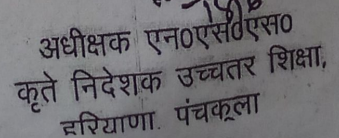 अधीक्षक एन0एस0एस0
कृते निदेशक उच्चतर शिक्षा,
हरियाणा. पंचकूला